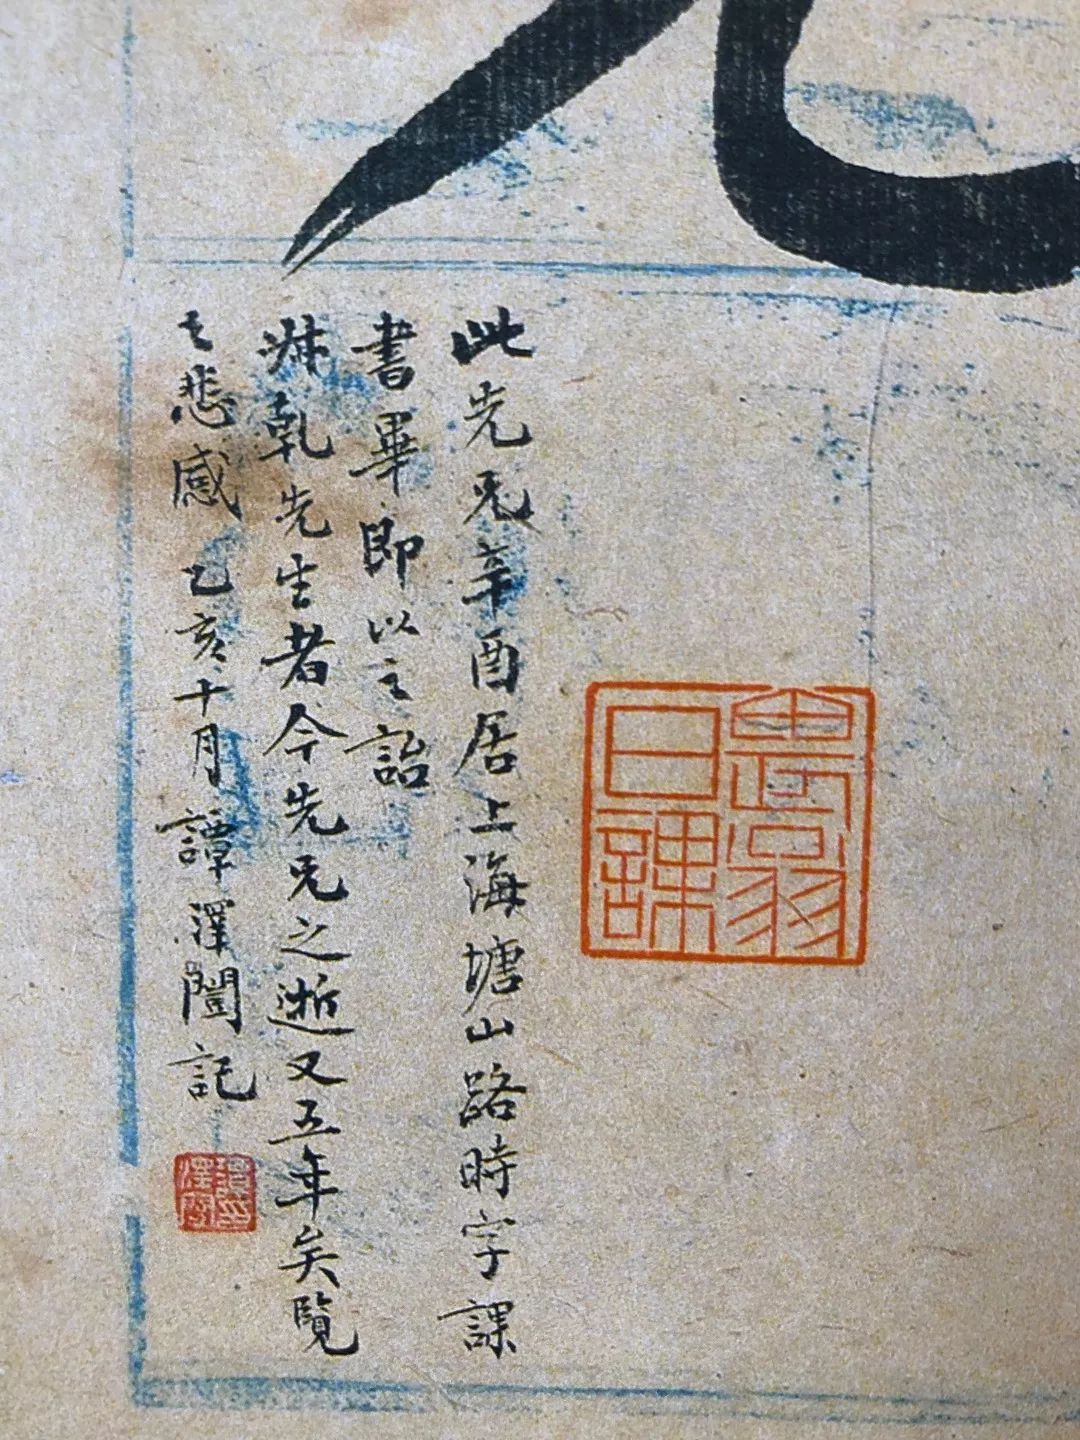 此先兄辛酉居上海塘山路時字課
書畢即以之詒
乾先生者今先兄之逝又五年矣覽
之悲感乙亥十月譚澤闓記
畏翁日課